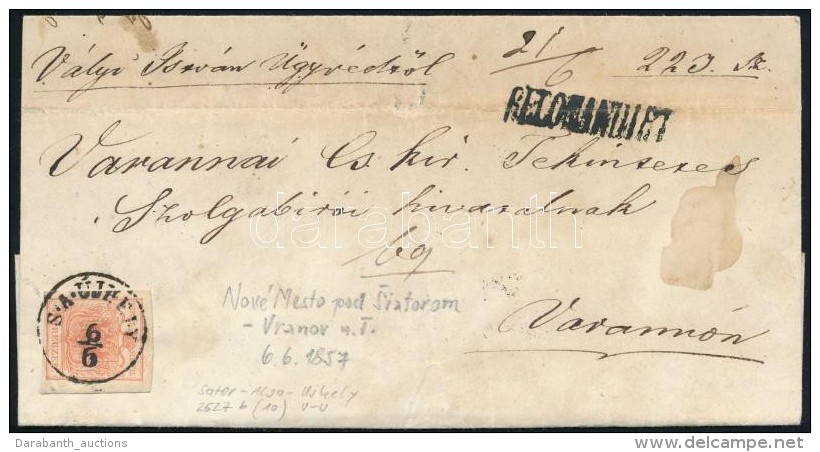 Vályi István Ügyvédtől
21/6
223. Sz.
RECOMANDIRT
Varannai Cs. kir. Tekintetes
Szolgabirói hivatalnak
darabanth
S.A.ÚJHELY
6/6
Nové Mesto pod Šiatorom
- Vranov n. T.
6.6.1857
Varannón
Sator-Alja-Ujhely
2627 b (10) U-U
Darabanth_auctions
delcampe.net